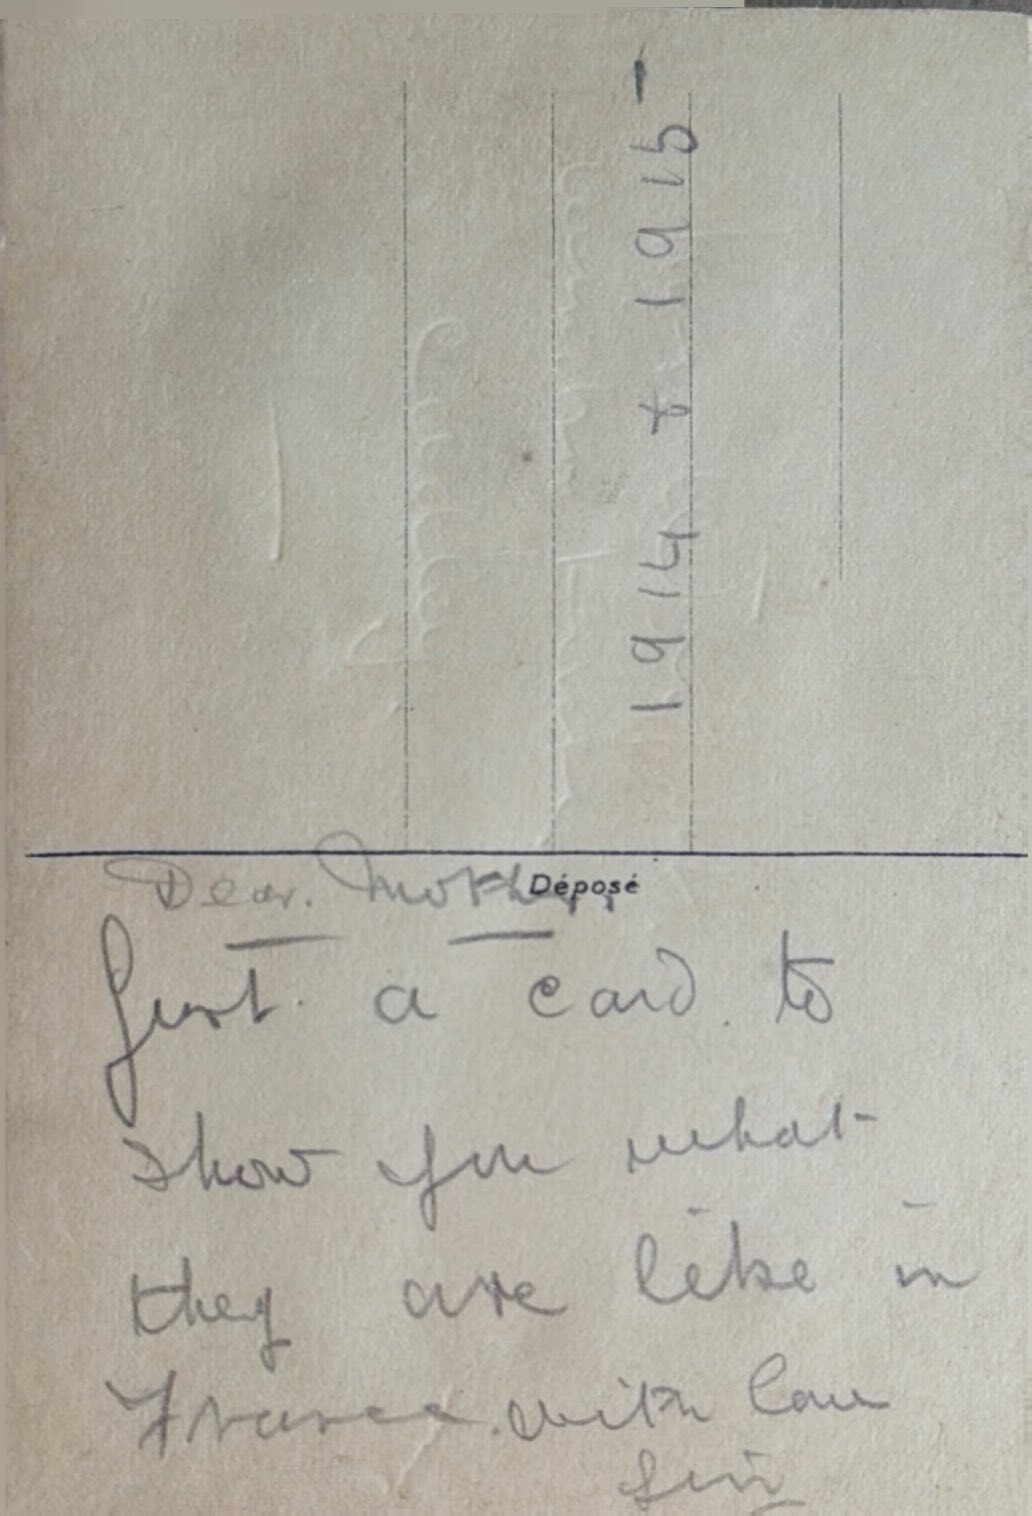 1914 & 1915 -
Dear. Mother
Déposé
Just. a card. to
show you what
they are like in
France. with love
Jim